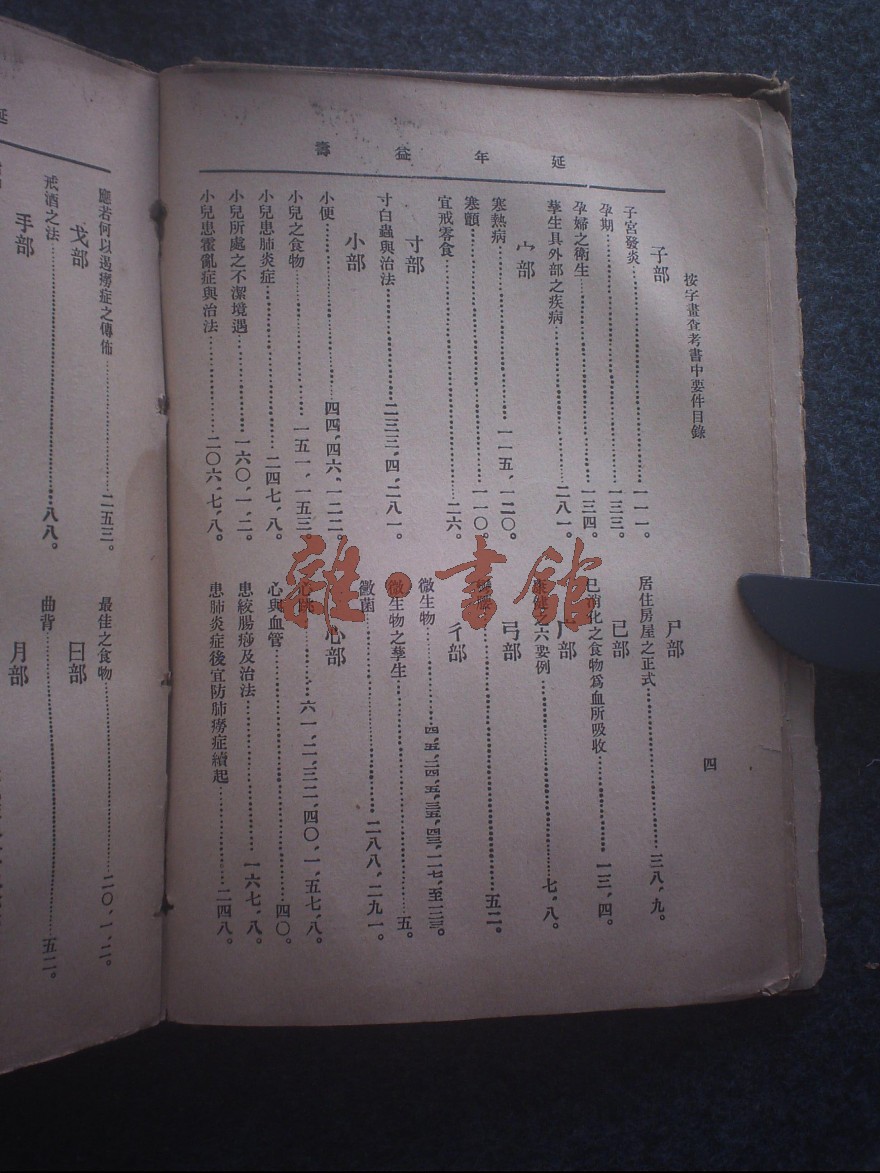 延年益壽
按字畫查考書中要件目錄
四
子部
子宮發炎……一一一。
孕期……一三三。
孕婦之衛生……一三四。
孳生具外部之疾病……二八一。
宀部
寒熱病……一一五，一二〇。
寒顫……一一〇。
宜戒零食……二六。
寸部
寸白蟲與治法……二三三，四，二八一。
小部
小便……四四，四六，一二二。
小兒之食物……一五一，一五三
小兒患肺炎症……二四七，八。
小兒所處之不潔境遇……一六〇，一，二。
小兒患霍亂症與治法……二〇六，七，八。
尸部
居住房屋之正式……三八，九。
已部
已消化之食物爲血所吸收……一三，四。
广部
康健之六要例……七，八。
弓部
……五二。
彳部
微生物……四，五，二四，五，三五，四三，一一七，至一二三。
微生物之孳生……五。
黴菌……二八八，二九一。
心部
心跳……六一，二，三二，四〇，一，五七，八。
心與血管……四〇。
患絞腸痧及治法……一六七，八。
患肺炎症後宜防肺癆症續起……二四八。
延
應若何以遏癆症之傳佈……二五三。
戈部
戒酒之法……八八。
手部
最佳之食物……二〇，一，二。
日部
曲背……五二。
月部
雜·書館